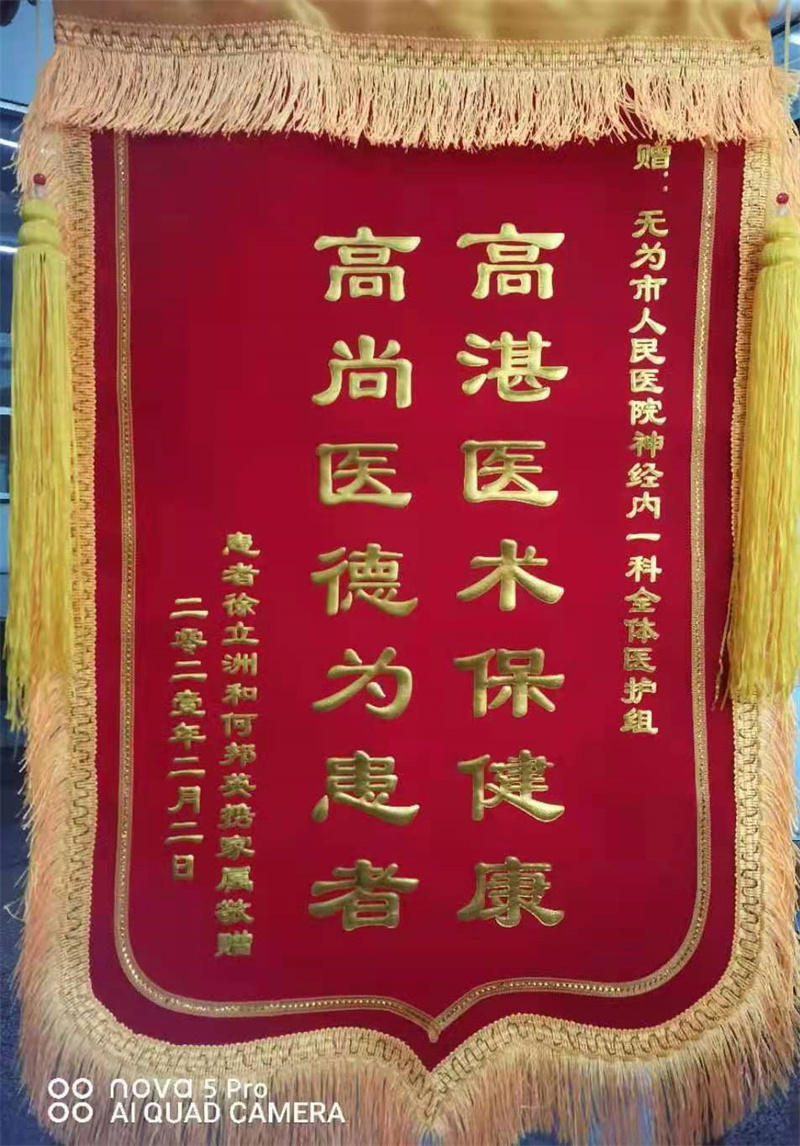 赠：无为市人民医院神经内一科全体医护组
高湛医术保健康
高尚医德为患者
患者徐立洲和何邦英携家属敬赠
二零二壹年二月二日
nova 5 Pro
AI QUAD CAMERA